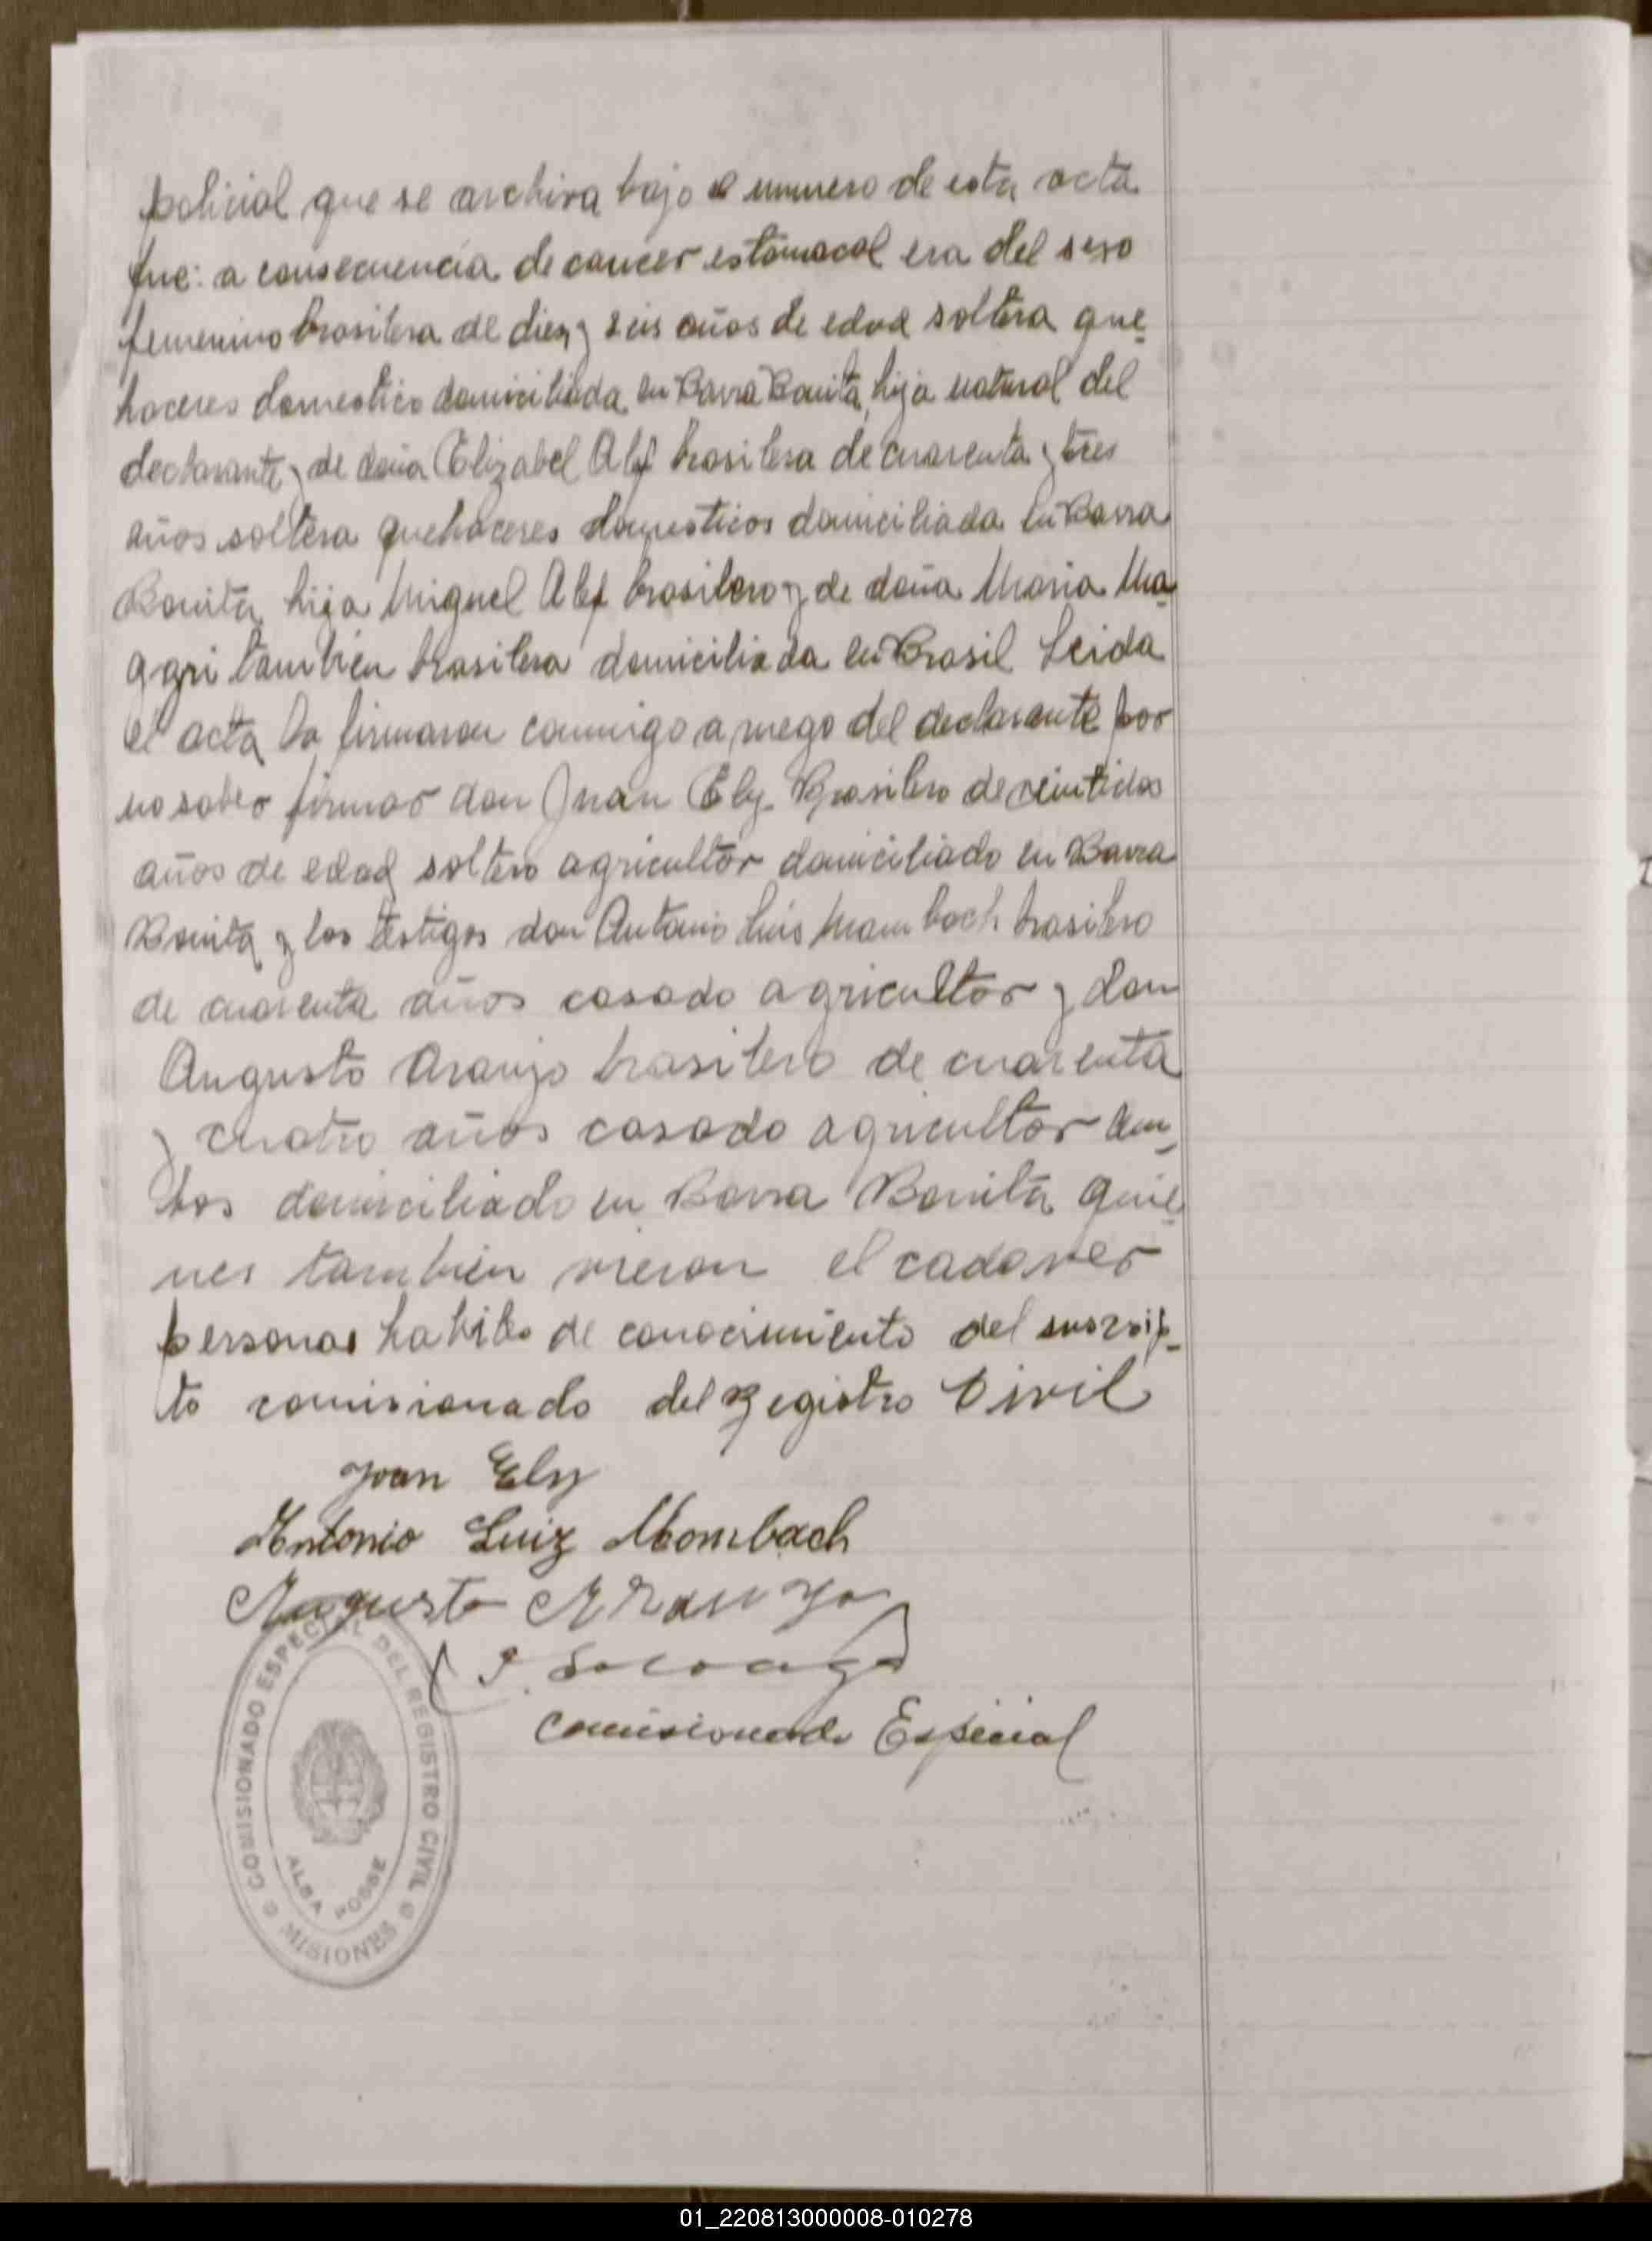 policial que se archiva bajo el numero de esta acta
fue: a consecuencia de cancer estomacal era del sexo
femenino brasilera de diez y seis años de edad soltera que_
haceres domestico domiciliada en Barra Bonita, hija natural del
declarante y de doña Elizabel Alf brasilera de cuarenta y tres
años soltera quehaceres domesticos domiciliada en Barra
Bonita hija Miguel Alf brasilero y de doña Maria Ma_
ggri tambien brasilera domiciliada en Brasil Leida
el acta la firmaron conmigo a ruego del declarante por
no saber firmar don Juan Ely Brasilero de veintidos
años de edad soltero agricultor domiciliado en Barra
Bonita y los testigos don Antonio Luis Mambach brasilero
de cuarenta años casado agricultor y don
Augusto Araujo brasilero de cuarenta
y cuatro años casado agricultor am_
bos domiciliado en Barra Bonita quie_
nes tambien vieron el cadaver
personas habiles de conocimiento del suscrip_
to comisionado del Registro Civil
Joan Ely
Antonio Luiz Mombach
Augusto Araujo
Comisionado Especial
COMISIONADO ESPECIAL DEL REGISTRO CIVIL
ALBA POSSE
MISIONES
01_220813000008-010278